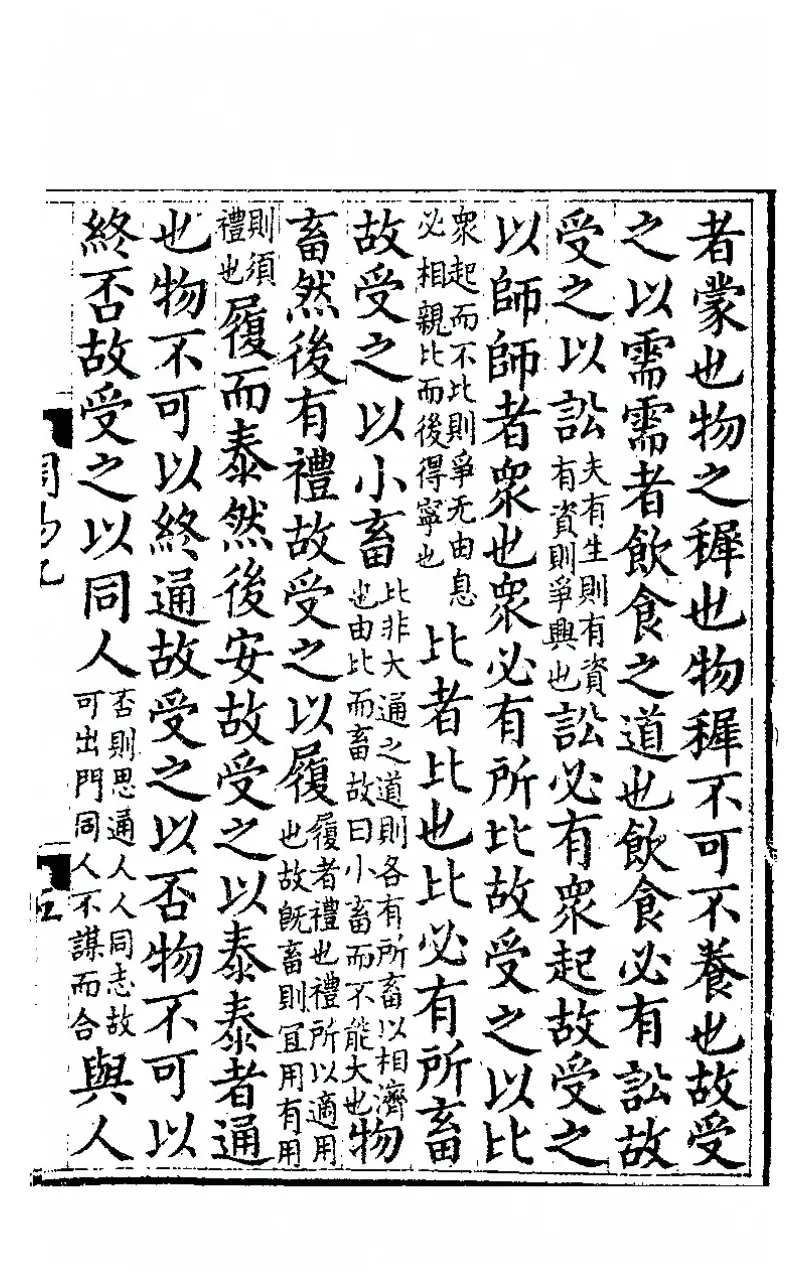 者蒙也物之穉也物穉不可不養也故受
之以需需者飲食之道也飲食必有訟故
受之以訟夫有生則有資有資則爭興也訟必有衆起故受之
以師師者衆也衆必有所比故受之以比
衆起而不比則爭无由息必相親比而後得寧也比者比也比必有所畜
故受之以小畜比非大通之道則各有所畜以相濟也由比而畜故曰小畜而不能大也物
畜然後有禮故受之以履履者禮也禮所以適用也故旣畜則宜用有用
則須禮也履而泰然後安故受之以泰泰者通
也物不可以終通故受之以否物不可以
終否故受之以同人否則思通人人同志故可出門同人不謀而合與人